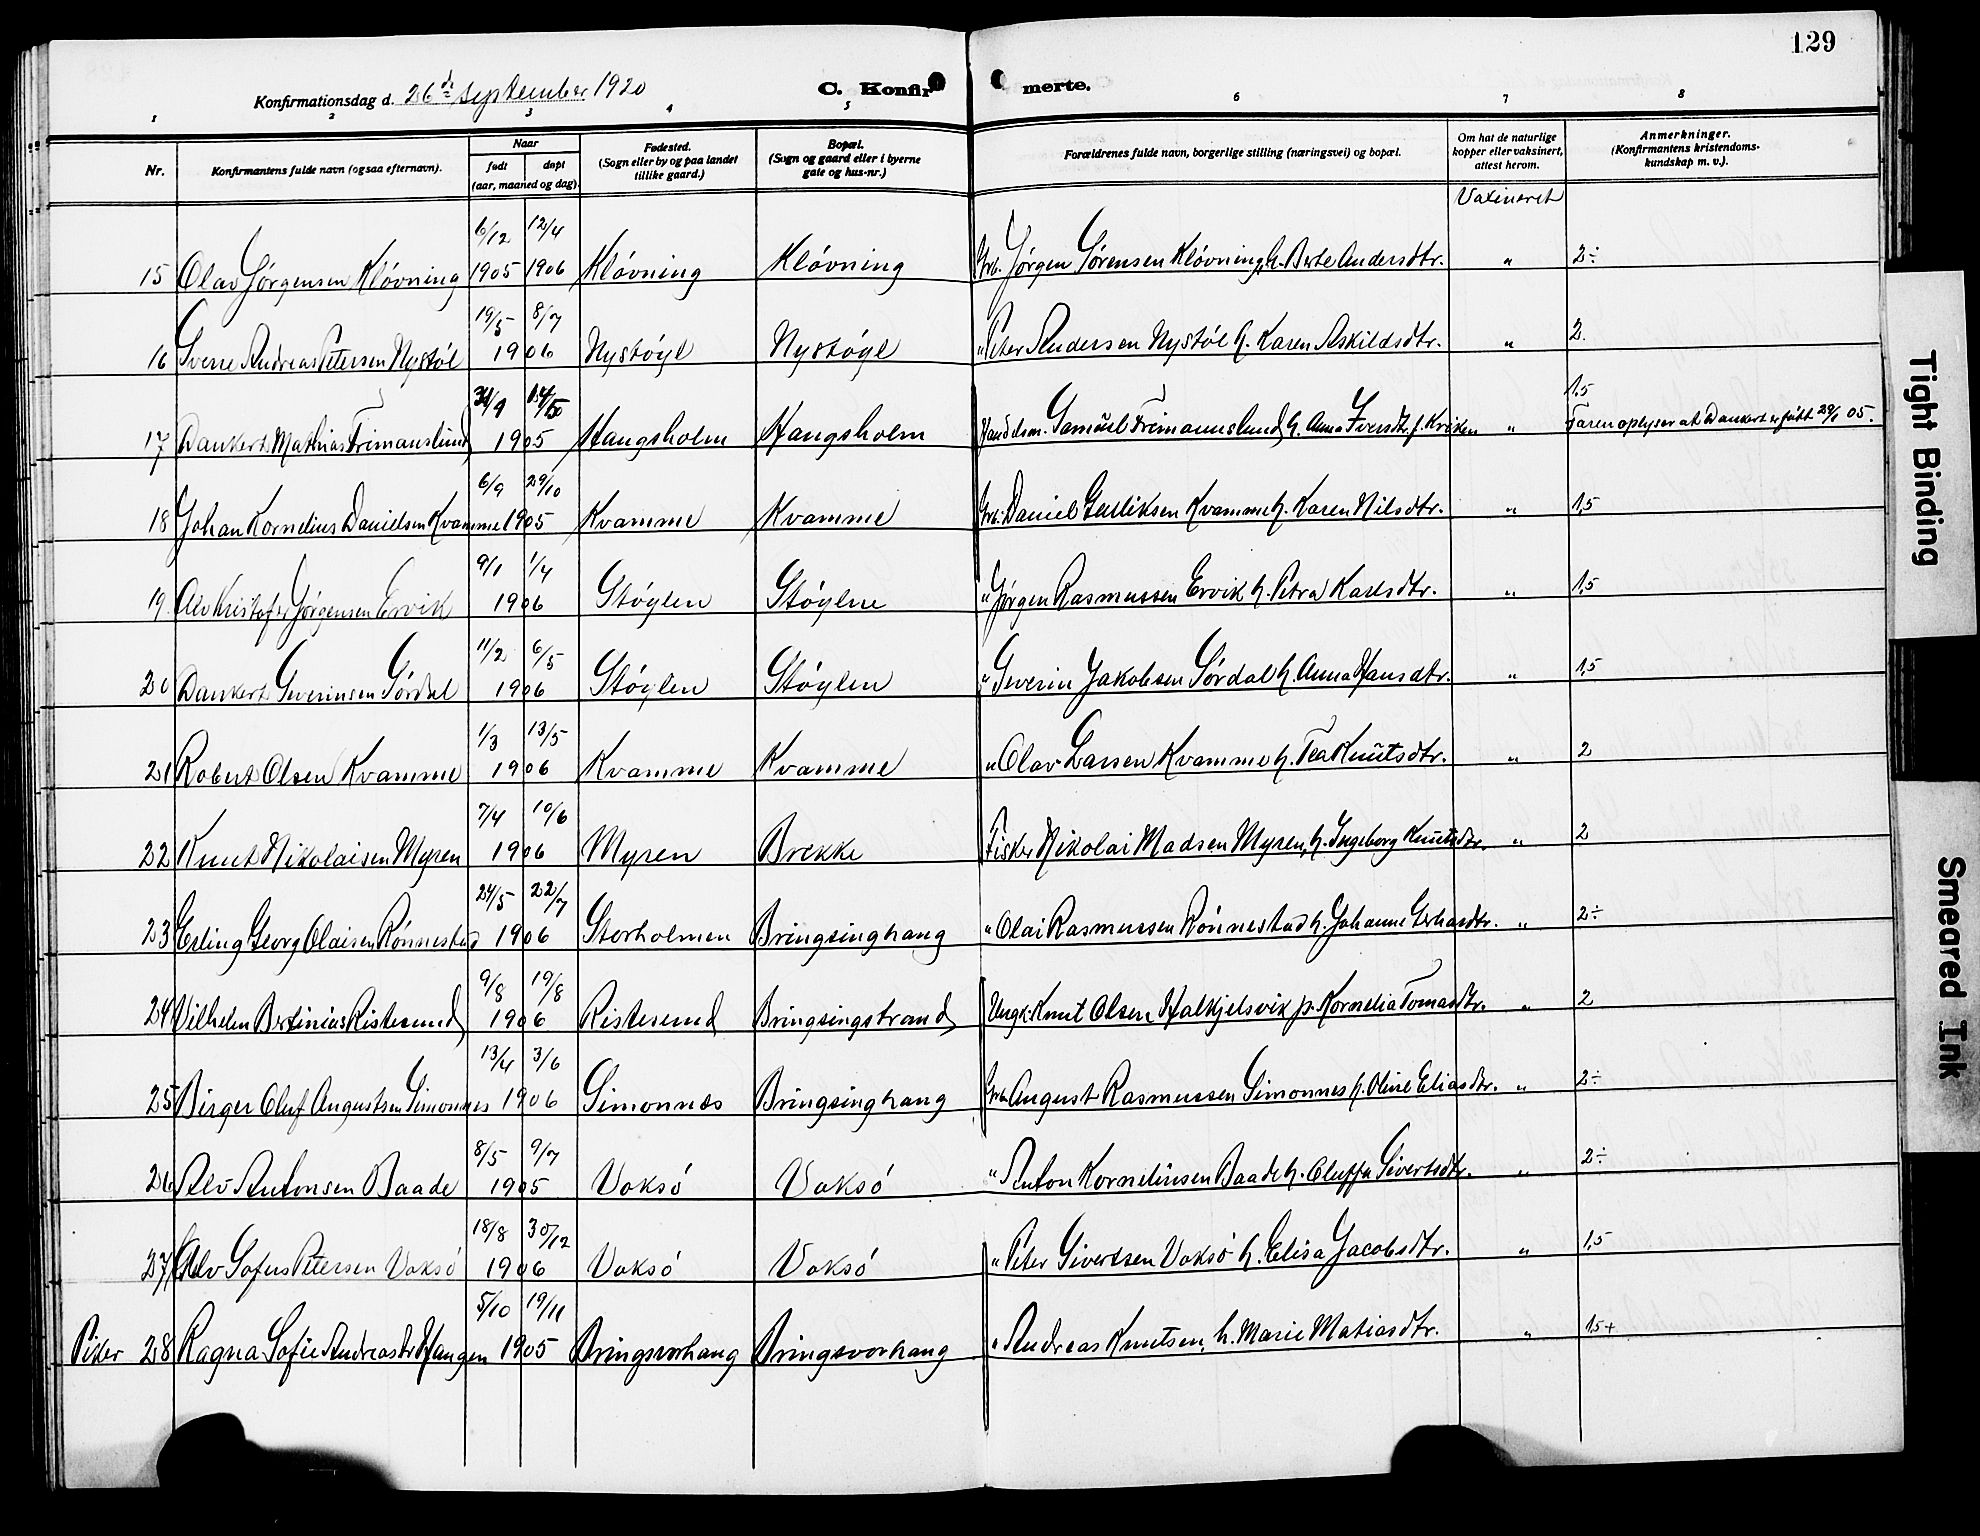 129
Konfirmationsdag d. 26de september 1920 C. Konfirmerte.
1 2 3 4 5 6 7 8
Nr. Konfirmantens fulde navn (ogsaa efternavn). Naar født døpt (aar, maaned og dag) Fødested. (Sogn eller by og paa landet tillike gaard.) Bopæl. (Sogn og gaard eller i byerne gate og hus-nr.) Forældrenes fulde navn, borgerlige stilling (næringsvei) og bopæl. Om hat de naturlige kopper eller vaksinert, attest herom. Anmerkninger. (Konfirmantens kristendomskundskap m. v.).
Vaxineret
6/12 12/4
15 Olav Jørgensen Kløvning 1905 1906 Kløvning Kløvning Grb. Jørgen Sørensen Kløvning, h. Berte Andersdtr. " 2÷
19/5 8/7
16 Sverre Andreas Petersen Nystøl 1906 Nystøyl Nystøyl " Peter Andersen Nystøl h. Karen Askildsdtr. " 2.
1,5
17 Dankert Mathias Frimanslund 1905 Haugsholm Haugsholm Handelsm. Samuel Frimannslund h. Anna Iversdtr. f. " Faren oplyser at Dankert er født 29/ 05.
6/9 29/10
18 Johan Kornelius Danielsen Kvamme 1905 Kvamme Kvamme Grb. Daniel Gulliksen Kvamme h. Karen Nilsdtr. " 1,5
9/1 1/4
19 Alv Kristofer Jørgensen Ervik 1906 Støylen Støylne " Jørgen Rasmussen Ervik h. Petra Karlsdtr. " 1,5
11/2 6/5
20 Dankert Severinsen Sørdal 1906 Støylen Støylen " Severin Jakobsen Sørdal h. Anna Hansdtr. " 1,5
1/3 13/5
21 Robert Olsen Kvamme 1906 Kvamme Kvamme " Olav Larsen Kvamme h. Tea Knutsdtr. " 2
7/4 10/6
22 Knut Nikolaisen Myren 1906 Myren Brekke Fisker Nikolai Madsen Myren, h. Ingeborg Knutsdtr. " 2
24/5 22/7
23 Erling Georg Olaisen Rønnestad 1906 Storholmen Bringsinghaug " Olai Rasmussen Rønnestad h. Johanne Gerhardtr. " 2÷
9/8 19/8
24 Vilhelm Bertinius Ristesund 1906 Ristesund Bringsingstrand Ungk. Knut Olsen Halkjelsvik p. Kornelia Tomasdtr. " 2
13/4 3/6
25 Birger Oluf Augustsen Simonnes 1906 Simonnæs Bringsinghaug Grb. August Rasmussen Simonnes h. Oline Eliasdtr. " 2÷
8/5 9/7
26 Alv Antonsen Baade 1905 Voksø Voksø " Anton Korneliussen Baade h. Oluffa Sivertsdtr. " 2÷
18/8 30/12
27 Alv Sofus Petersen Voksø 1906 Voksø Voksø " Peter Sivertsen Voksø h. Elisa Jacobsdtr. " 1,5
5/10 19/11
Piker 28 Ragna Sofie Andreasdtr Haugen 1905 Bringsvorhaug Bringsvorhaug " Andreas Knutsen, h. Marie Matiasdtr. " 1,5+
Tight Binding
Smeared Ink